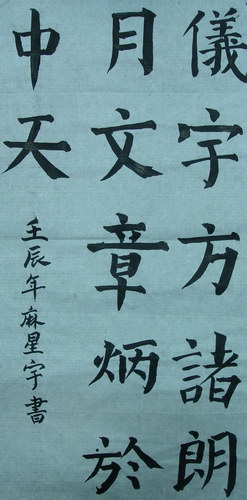 儀宇方諸朗
月文章炳於
中天
壬辰年麻星宇書